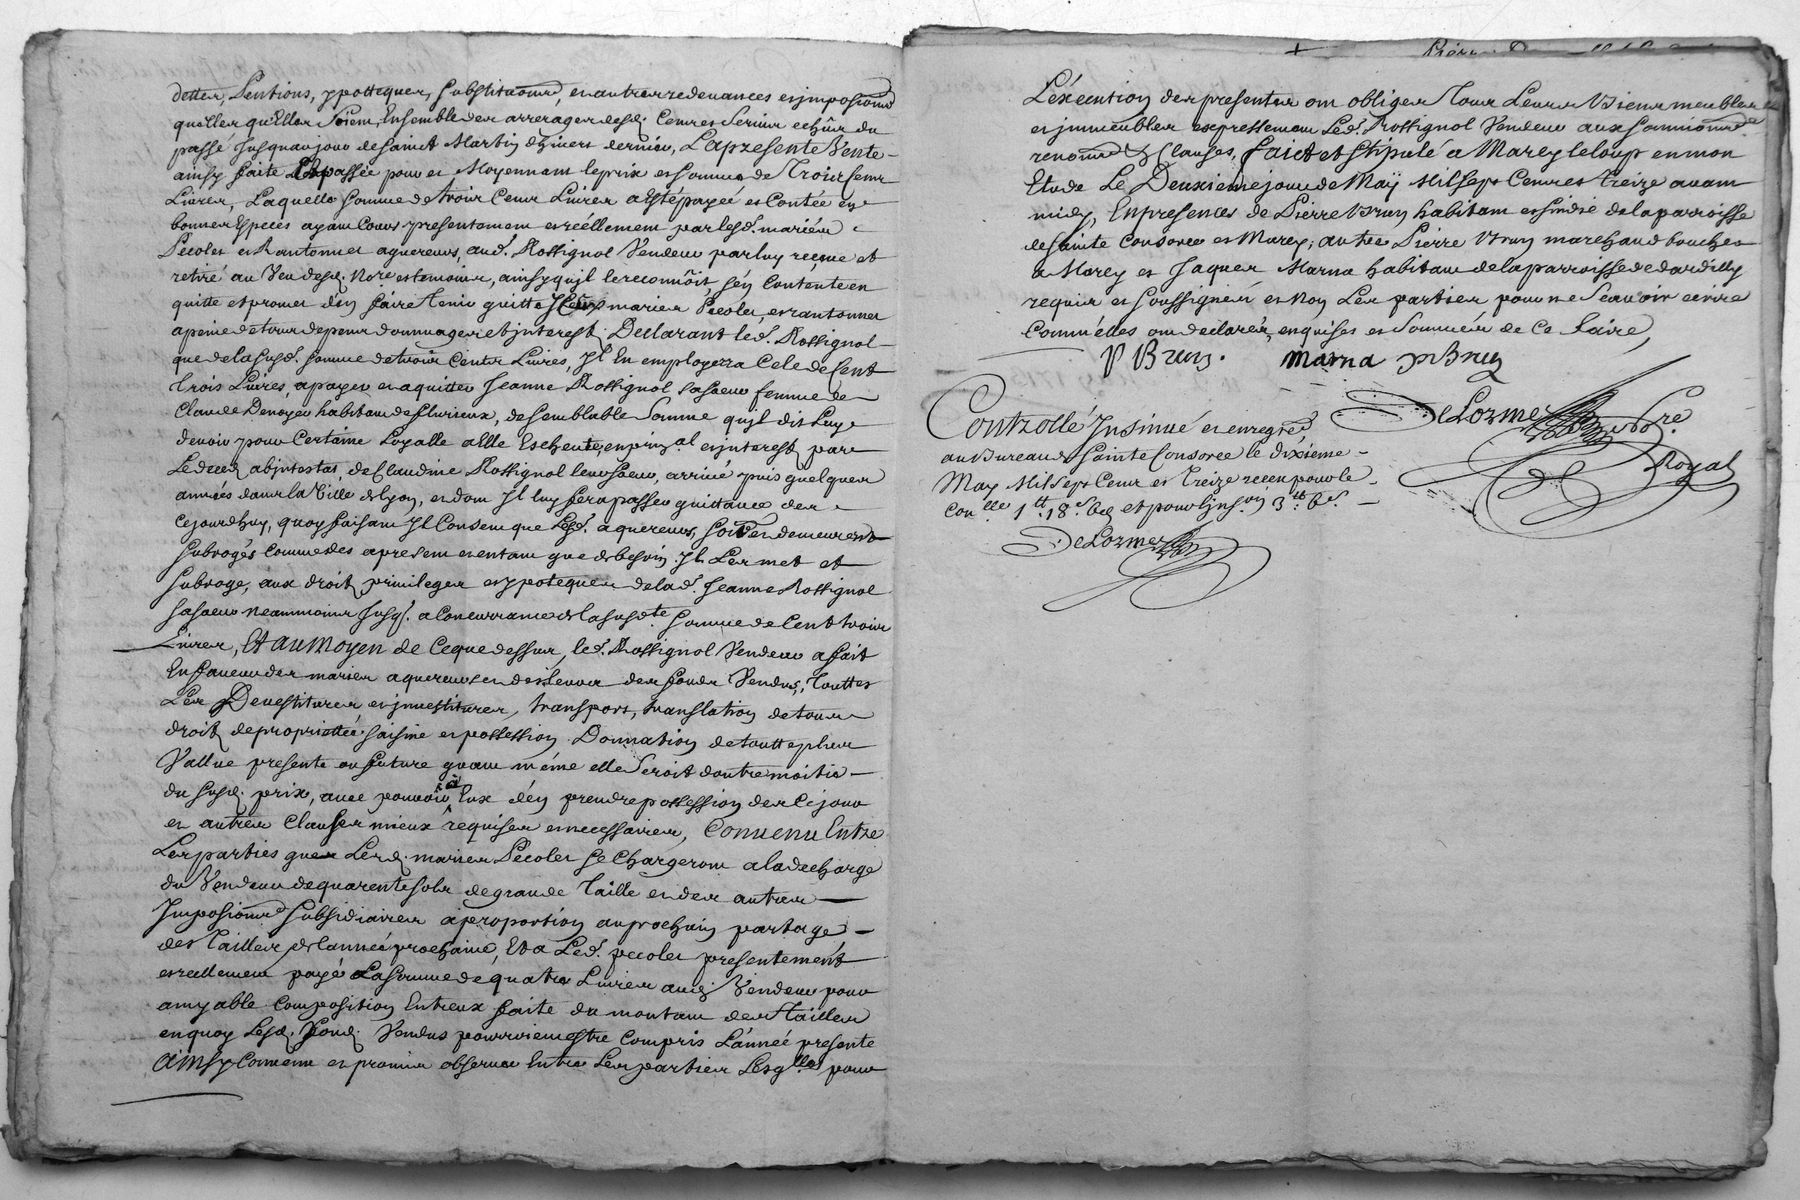 dettes, Pentions, ypotteques, substitutions, et autres redevances et jmpositions
quelles qu'Elles soient, Ensemble des arrerages desd. Cens et Servis echûs du
passé jusqu'au jour de sainct Martin d'hivers dernier, La presente Vente
ainsy faite et passée pour et Moyennant le prix et somme de Trois Cents
Livres, Laquelle somme de trois Cents Livres a Esté payée et Contée en
bonnes Especes ayant Cours presentement et réellement par lesd. mariés
Pecolet et Rantonnet aquereurs, aud. Rossignol Vendeur par luy receue et
retiré au Veu desd. Nore. et temoins, ainsy qu'jl le reconnoît, s'én Contente en
quitte et promet d'én faire tenir quitte lesd. mariés Pecolet, et rantonnet
a peine de tous depens dommages et jnterest, Declarant led. Rossignol
que de la susd. somme de trois Cents Livres, Jl En employera Cele de Cent
trois Livres, a payer et aquitter Jeanne Rossignol sa soeur femme de
Claude Denoyer habitant de fleurieux, de semblable Somme qu'jl dit Luy
devoir pour Certaine Loyalle a Elle Escheute, en prinal. et jnterest, par
Le decés abjntestat, de Claudine Rossignol leur soeur, arrivé puis quelques
années dans la Ville de Lyon, et dont Jl luy fera passer quittance des
Cejourdhuy, quoy faisant Jl Consent que Lesd. aquereurs, soient et demeurent
subrogés Comme des apresent et entant que de besoin Jl Les met et
subroge, aux droits privileges et ypoteques de lad. Jeanne Rossignol
sa soeur neanmoins jusq. a Concurrance de la susdte. somme de Cent trois
Livres, Et au Moyen de Ce que dessus, led. Rossignol Vendeur a fait
En faveur des mariés aquereurs et des Leurs des fonds Vendus, Touttes
Les Devestitures et jnvestitures, transport, translation de tous
droits de propriettée saisine et possession Donnation de toutte plus
Vallue presente ou future quant même elle seroit d'outre moitié
du susd. prix, avec pouvoir à Eux d'én prendre possession des Cejour
et autres Clauses mieux requises et necessaires, Convenu Entre
Les parties que Lesd. mariés Pecolet se Chargeront a la decharge
du Vendeur de quarente sols de grande Taille et des autres
Impositions subsidiaires a proportion au prochain partage
des Tailles de l'année prochaine, Et a Led. pecolet presentemént
et réellement payé La somme de quatre Livres aud. Vendeur pour
amyable Composition Entreux faite du montant des Tailles
en quoy Lesd. fond. Vendus pourroient estre Compris L'année presente
Ainsy Convenu et promis observer Entre Les parties Lesqlles pour
L'éxecution des presentes ont obligés Tous Leurs Biens meubles
et jmmeubles expressement Led. Rossignol Vendeur aux soumissions
renonces. & Clauses, Faict et Stipulé a Marcy le loup en mon
Etude Le Deuxieme jour de Maÿ Mil Sept Cents et Treize avant
midy, En presences de Pierre Brun habitant et sindic de la parroisse
de sainte Consorce et Marcy, autre Pierre Brun marchand boucher
a Marcy et Jaques Marna habitant de la parroisse de dardilly
requis et soussignés et Non Les parties pour ne Scavoir ecrire
Comm'élles ont declarés, enquises et Sommées de Ce faire,
P Brun. marna p Brun
DeLorme Nore.
Royal
Controllé Insinué et enregré.
au Bureau de Sainte Consorce le dixiéme
May Mil Sept Cent et Treize receu pour le
Conlle 1tt. 18s. 6d et pour l'jnson 3tt. 6s.
DeLorme